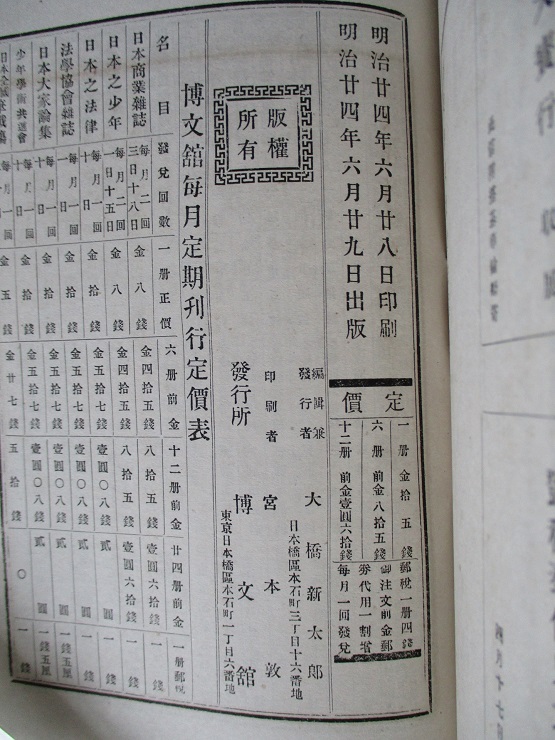 明治廿四年六月廿八日印刷
明治廿四年六月廿九日出版
定價
一册金拾五錢
六册前金八拾五錢
十二册前金壹圓六拾錢
郵税一册四錢
御注文前金郵
券代用一割增
每月一回發兌
編輯兼
發行者
大橋新太郎
日本橋區本石町三丁目十六番地
印刷者
宮本敦
發行所
博文舘
東京日本橋區本石町一丁目六番地
版權
所有
博文舘每月定期刊行定價表
名目
發兌回數
一册正價
六册前金
十二册前金
廿四册前金
一册郵税
日本商業雜誌
每月二回
三日十八日
金八錢
金四拾五錢
八拾五錢
壹圓六拾錢
一錢
日本之少年
每月二回
一日十五日
金八錢
金四拾五錢
八拾五錢
壹圓六拾錢
一錢
日本之法律
每月一回
金拾錢
金五拾七錢
壹圓〇八錢
貳圓
一錢
法學協會雜誌
每月一回
一日
金拾錢
金五拾七錢
壹圓〇八錢
貳圓
一錢五厘
日本大家論集
每月一回
十日
金拾錢
金五拾七錢
壹圓〇八錢
貳圓
一錢五厘
少年學術共進會
每月一回
金五錢
金廿七錢
五拾錢
〇
一錢